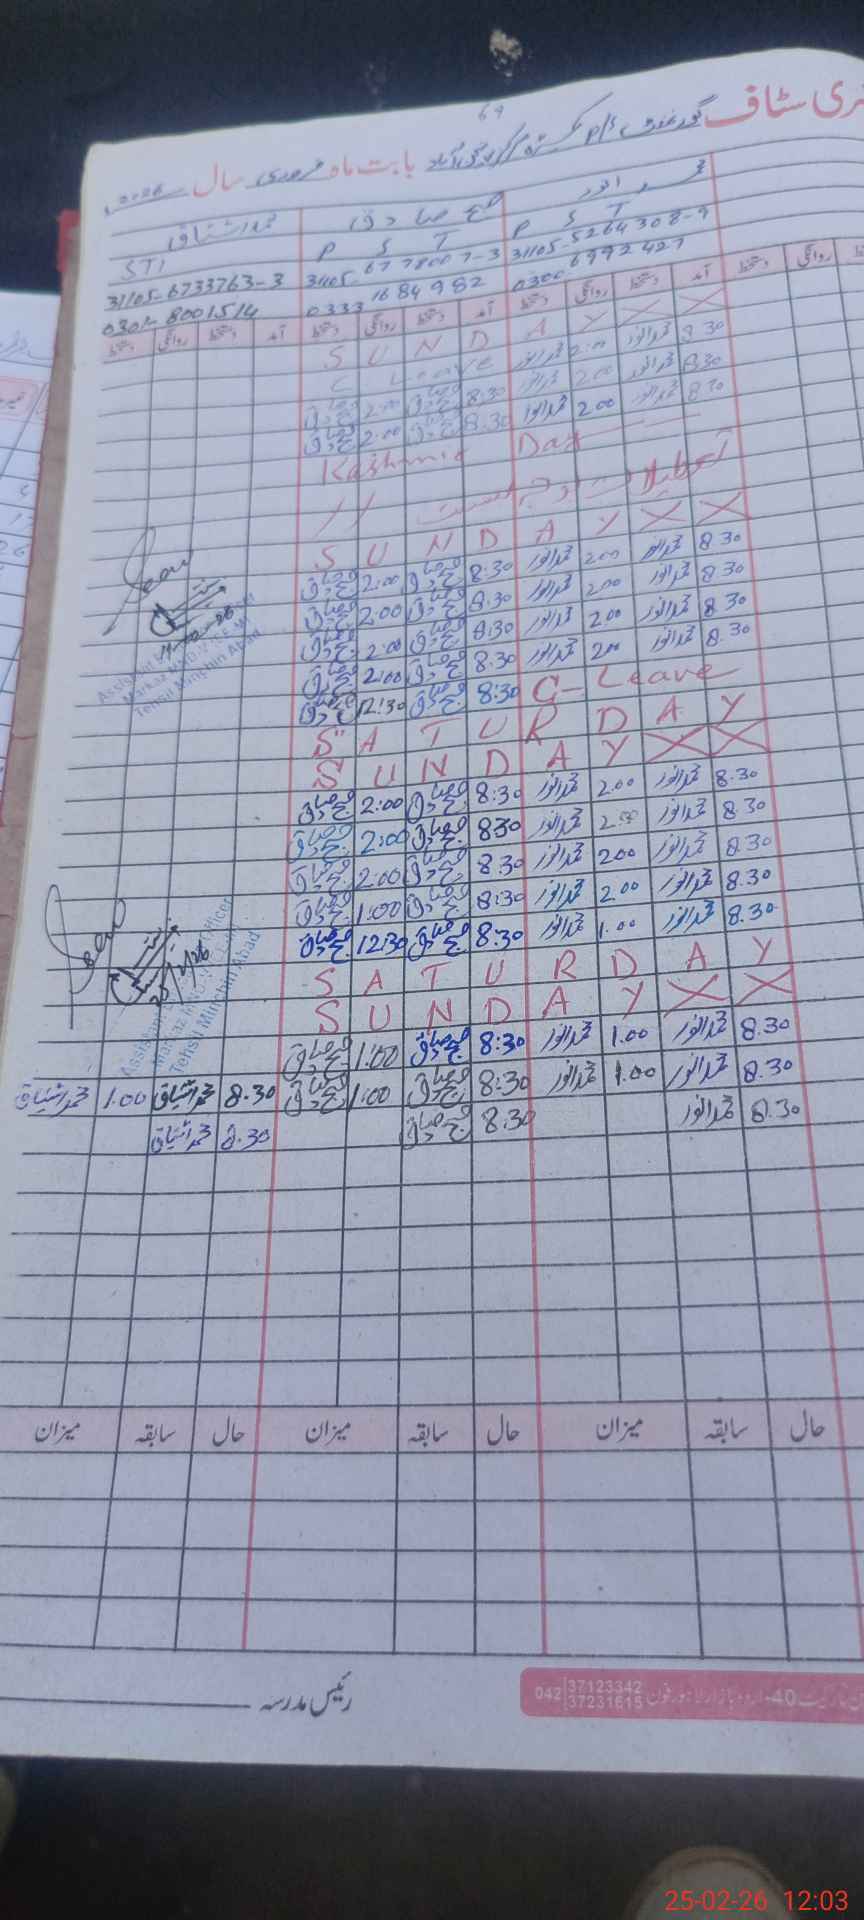 69
حاضری سٹاف گورنمنٹ P/S بابت ماہ فروری سال 2026
محمد انور
محمد صادق
محمد اشتیاق
P S T
P S T
STI
31105-5264308-9
31105-6778007-3
31105-6733763-3
0300 6992427
0333 1684982
0301-8001514
آمد دستخط روانگی دستخط آمد دستخط روانگی دستخط آمد دستخط روانگی دستخط
S U N D A Y X X
8.30 محمد انور 2.00 محمد انور C Leave
8.30 محمد انور 2.00 محمد انور 8:30 محمد صادق 2:00 محمد صادق
8.30 محمد انور 2.00 محمد انور 8:30 محمد صادق 2:00 محمد صادق
Kashmir Day
S U N D A Y X X
8.30 محمد انور 2.00 محمد انور 8:30 محمد صادق 2:00 محمد صادق
8.30 محمد انور 2.00 محمد انور 8:30 محمد صادق 2:00 محمد صادق
8.30 محمد انور 2.00 محمد انور 8:30 محمد صادق 2:00 محمد صادق
8.30 محمد انور 2.00 محمد انور 8:30 محمد صادق 2:00 محمد صادق
C-Leave 8:30 محمد صادق 12:30 محمد صادق
Tehsil Minchin Abad
S A T U R D A Y
S U N D A Y X X
8.30 محمد انور 2.00 محمد انور 8:30 محمد صادق 2:00 محمد صادق
8.30 محمد انور 2.00 محمد انور 8:30 محمد صادق 2:00 محمد صادق
8.30 محمد انور 2.00 محمد انور 8:30 محمد صادق 2:00 محمد صادق
8.30 محمد انور 2.00 محمد انور 8:30 محمد صادق 1:00 محمد صادق
8.30 محمد انور 1.00 محمد انور 8:30 محمد صادق 12:30 محمد صادق
Tehsil Minchin Abad
S A T U R D A Y
S U N D A Y X X
8.30 محمد انور 1.00 محمد انور 8:30 محمد صادق 1:00 محمد صادق
8.30 محمد انور 1.00 محمد انور 8:30 محمد صادق 1:00 محمد صادق 8.30 محمد اشتیاق 1.00 محمد اشتیاق
8.30 محمد انور 8:30 محمد صادق 8.30 محمد اشتیاق
حال سابقہ میزان حال سابقہ میزان حال سابقہ میزان
رئیس مدرسہ
مارکیٹ 40-اردو بازار لاہور فون 042 37123342 37231615
25-02-26 12:03